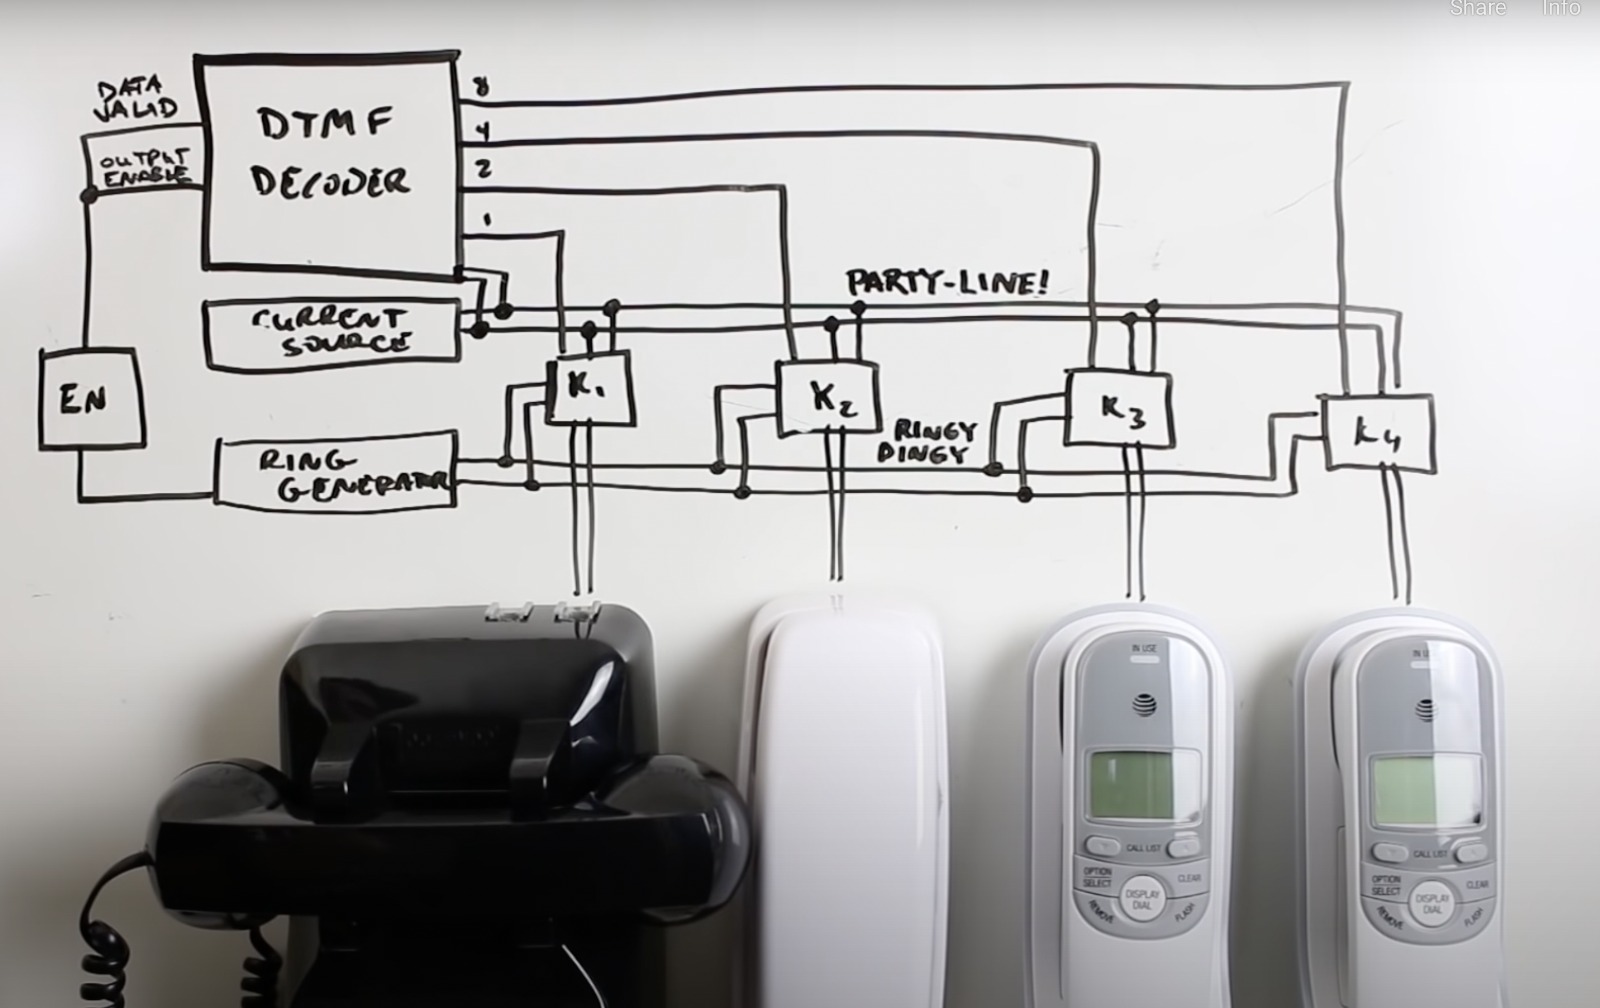 Share Info
DATA
VALID
OUTPUT
ENABLE
DTMF
DECODER
8
4
2
1
CURRENT
SOURCE
PARTY-LINE!
EN
K1
K2
K3
K4
RINGY
DINGY
RING
GENERATOR
IN USE
CALL LIST
OPTION
SELECT
CLEAR
DISPLAY
DIAL
REMOVE
FLASH
IN U
CALL LIST
OPTION
SELECT
CLEAR
DISPLAY
DIAL
REMOVE
FLASH